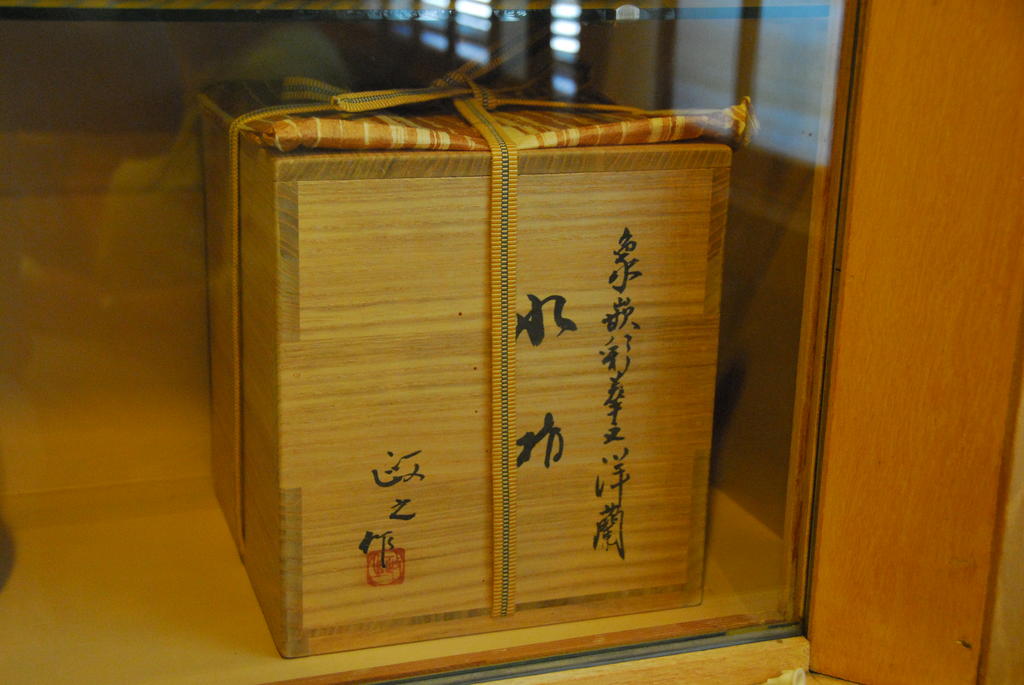 象嵌彩華文洋蘭
水坊
政之作